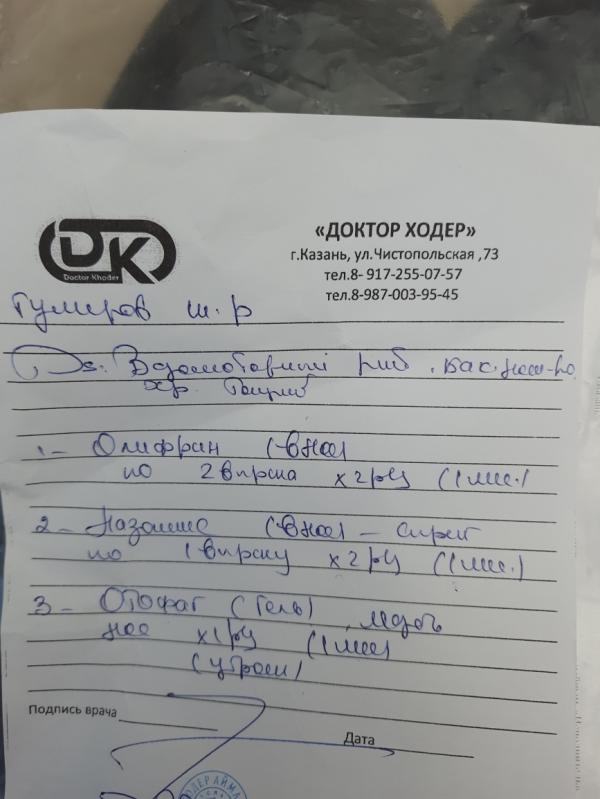 DK
Doctor Khoder
«ДОКТОР ХОДЕР»
г.Казань, ул.Чистопольская ,73
тел.8- 917-255-07-57
тел.8-987-003-95-45
Гумеров Ш. Р
Ds. Вазомоторный рин.
хр.
1 - Олифрин (в нос)
по 2 впрыска x 2 р/д (1 мес.)
2 - (в нос) - спрей
по 1 впрыску x 2 р/д (1 мес.)
3 - Отофаг (гель)
нос x 1 р/д (1 мес)
(утром)
Подпись врача
Дата